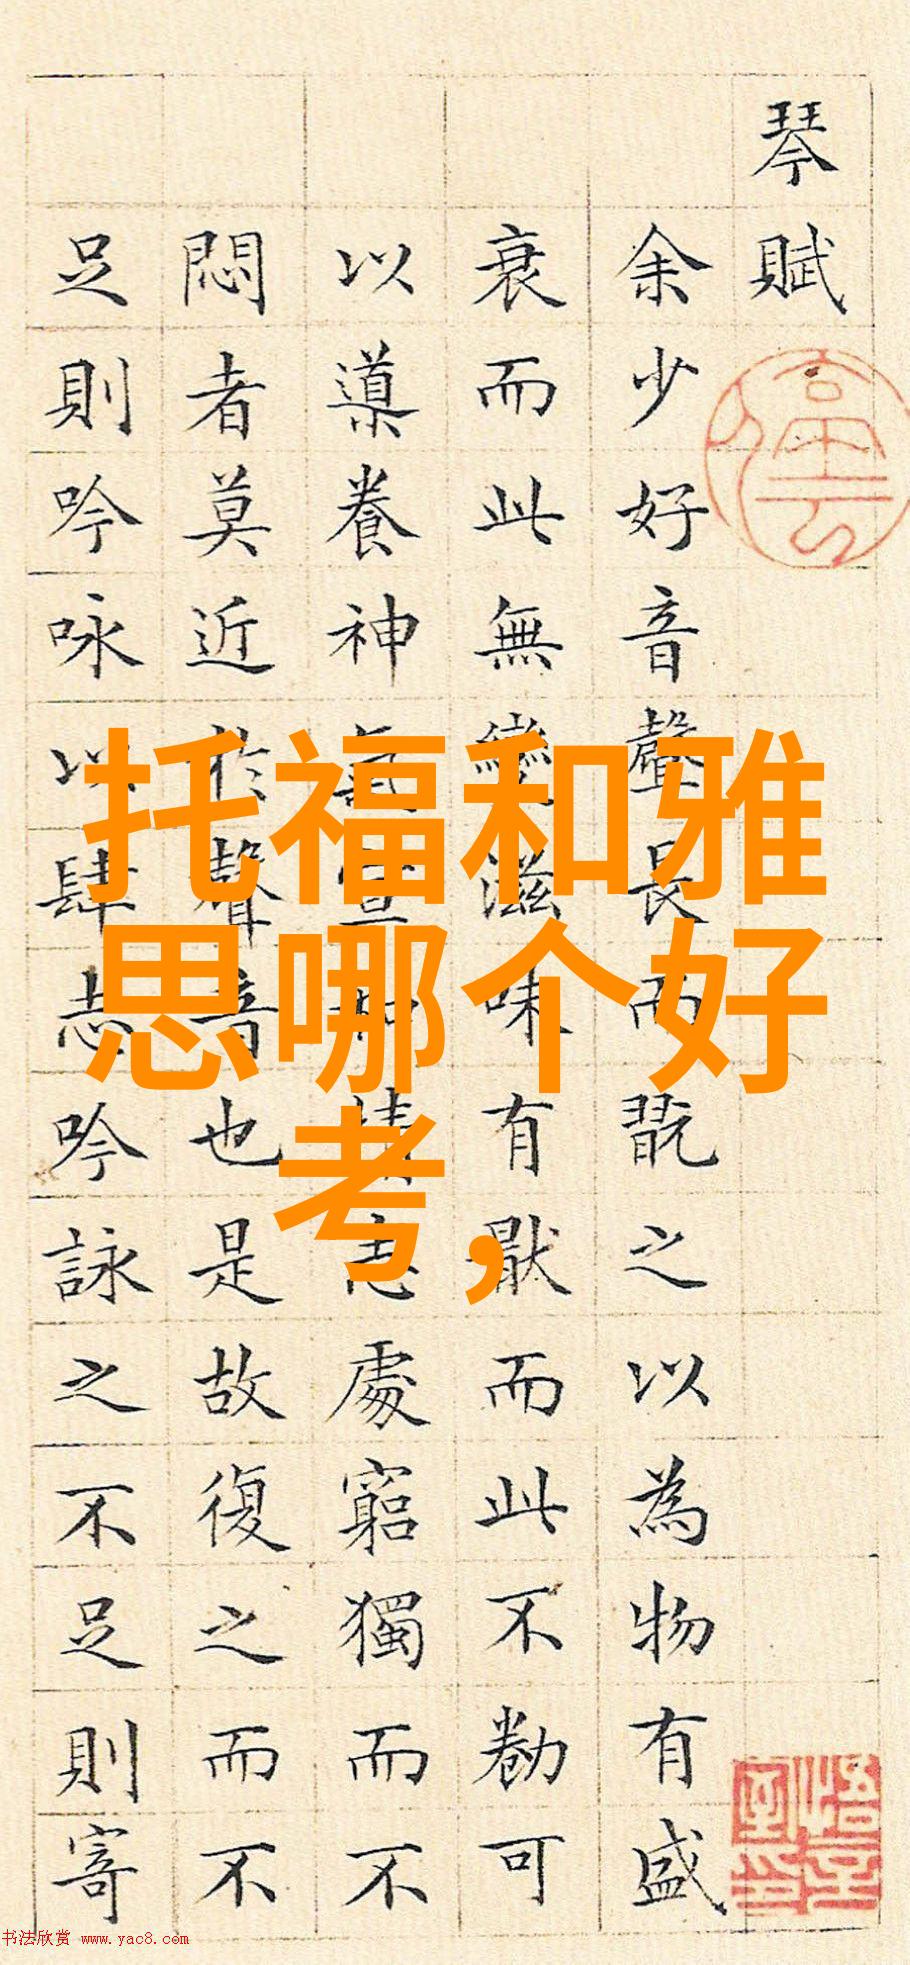 琴賦
余少好音聲長而翫之以為物有盛
衰而此無變滋味有厭而此不勌可
以導養神氣宣和情志處窮獨而不
悶者莫近於聲音也是故復之而不
足則吟咏以肆志吟詠之不足則寄
托福和雅
思哪个好
考，
书法欣赏 www.yac8.com